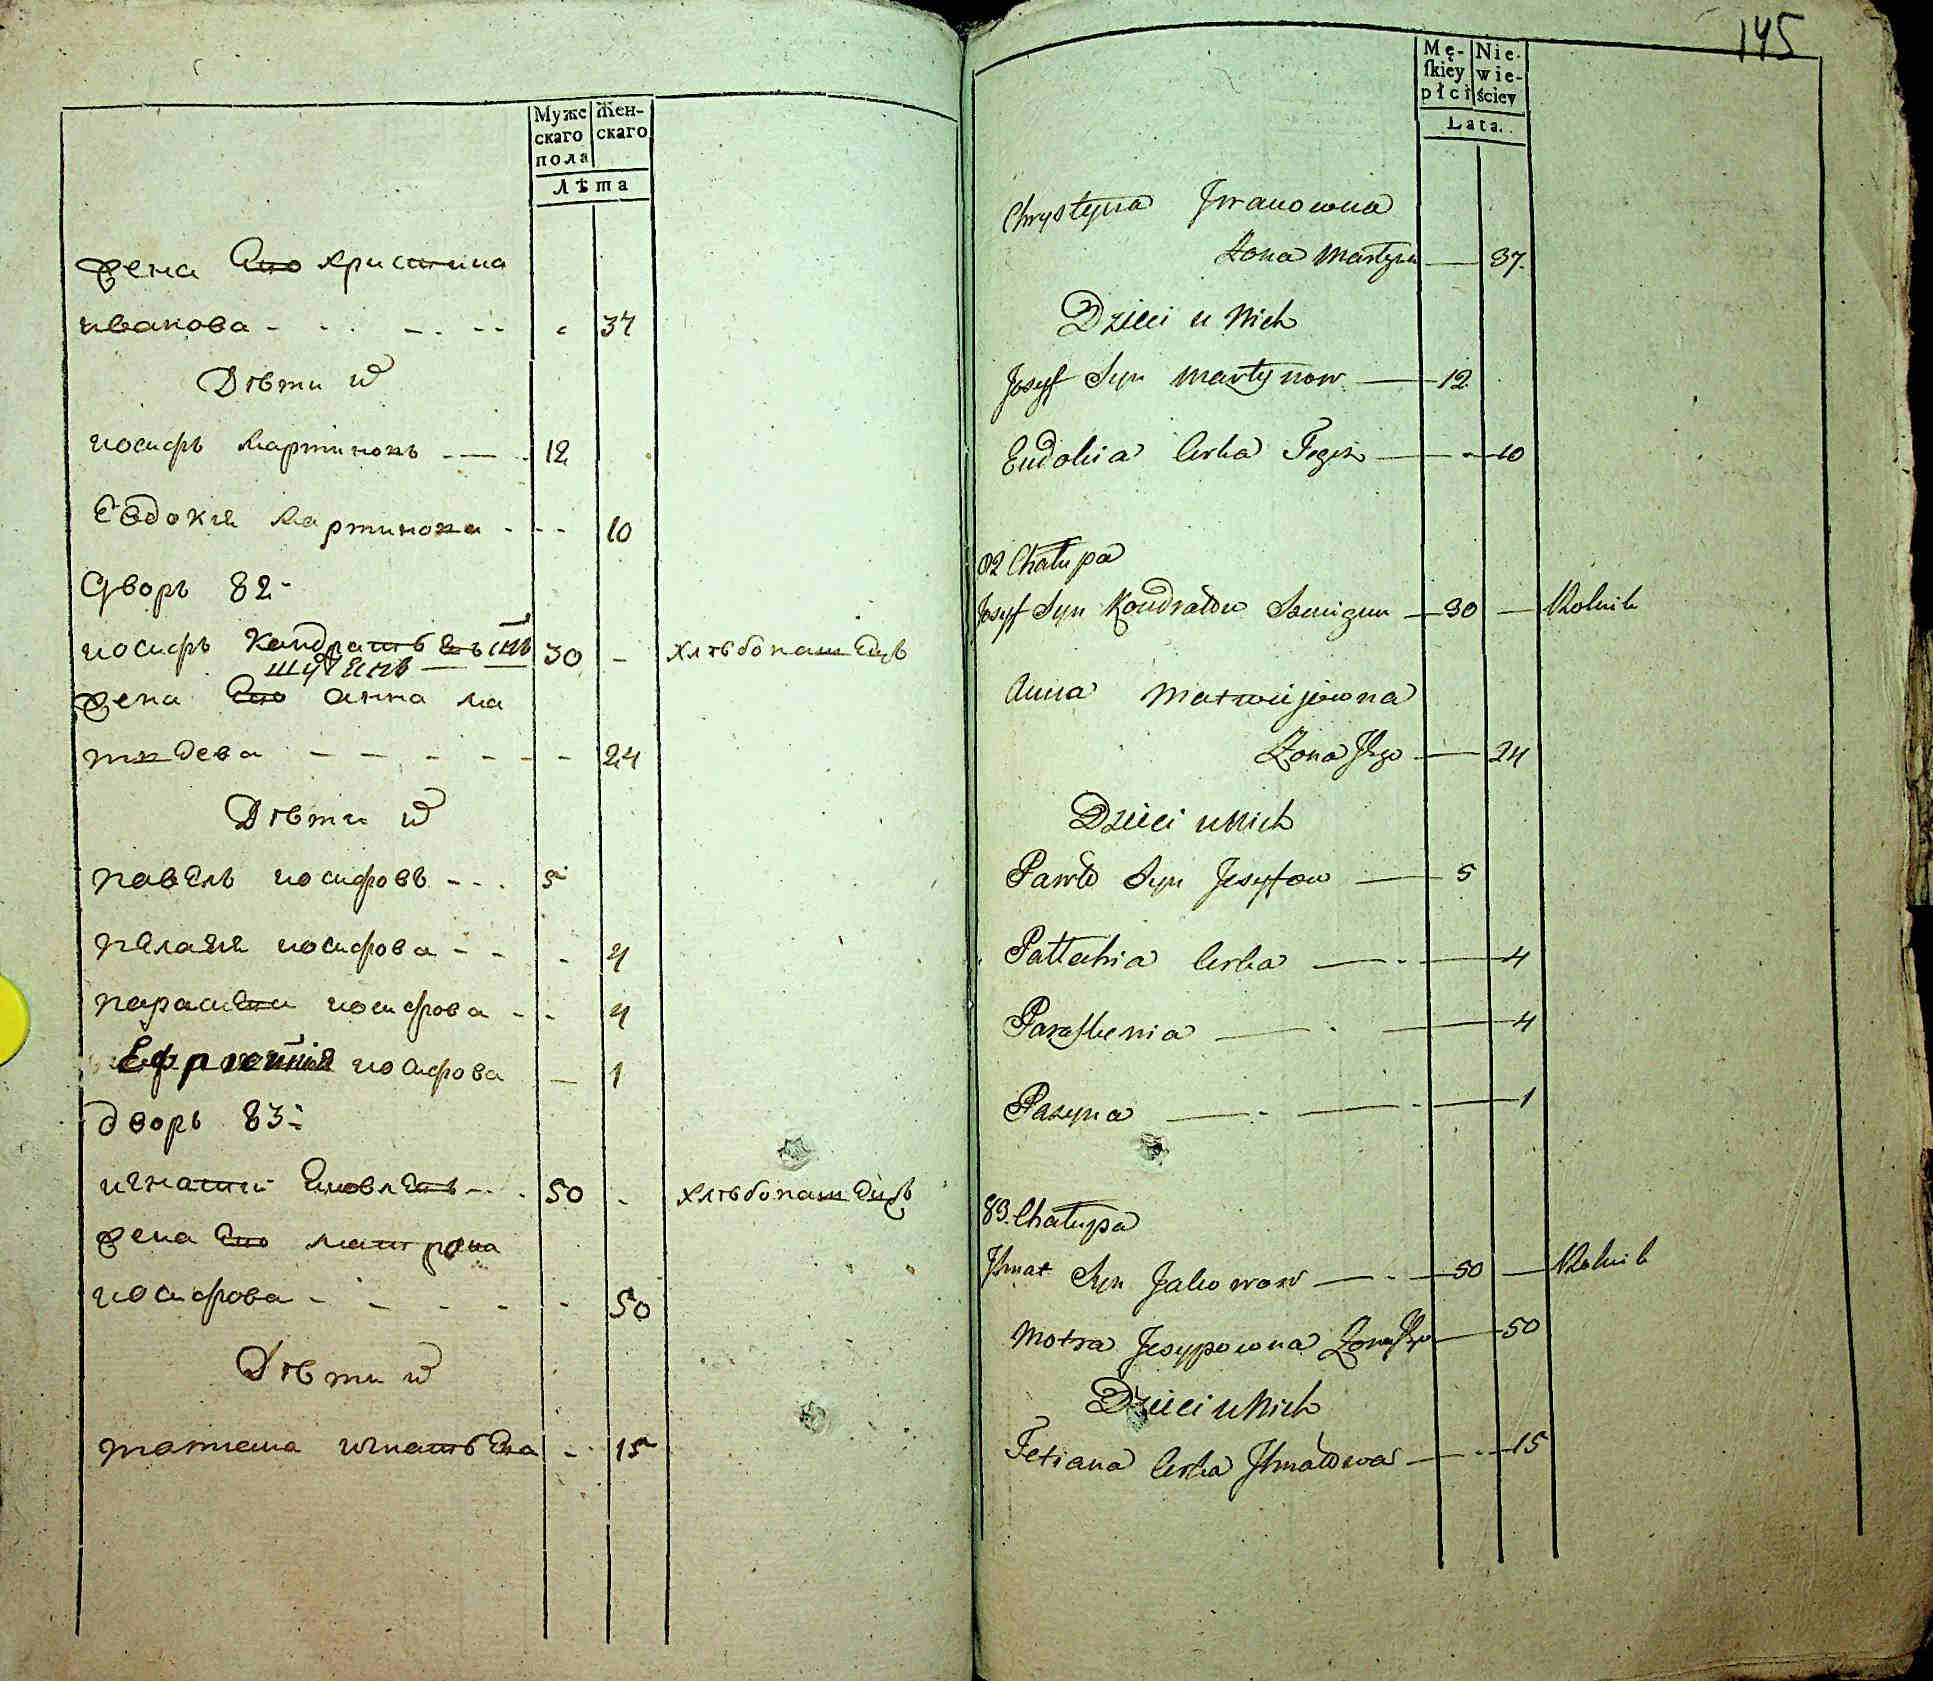 Муже скаго пола
Жен- скаго
Лѣта
жена Его христина
иванова 37
Дѣти их
иосифъ мартиновъ 12
Евдокия мартинова 10
Дворъ 82
иосифъ Кондратьевъ снъ 30 - хлѣбопашецъ
жена Его анна ма
твѣева 24
Дѣти их
павелъ иосифовъ 5
пелагия иосифова 4
парасковия иосифова 4
иосифова 1
дворъ 83
игнатий 50 - хлѣбопашецъ
жена Его матрона
иосифова 50
Дѣти их
татиана игнатьева 15
145
Mę- ſkiey płci
Nie- wie- ściey
Lata.
Chrystyna Jwanowna
Żona Martyna 37
Dzieci u Nich
Josyf Syn Martynow 12
Eudokia Corka Tegoż 10
82 Chałupa
Josyf Syn Kondratow 30 Rolnik
Anna Matwiejowna
Żona Jego 24
Dzieci u Nich
Pawło Syn Josyfow 5
Pałłahia Corka 4
Paraskewia 4
1
83. Chałupa
Jhnat Syn Jakowow 50 Rolnik
Motra Josypowna Żona Jego 50
Dzieci u Nich
Tetiana Corka Jhnatowa 15